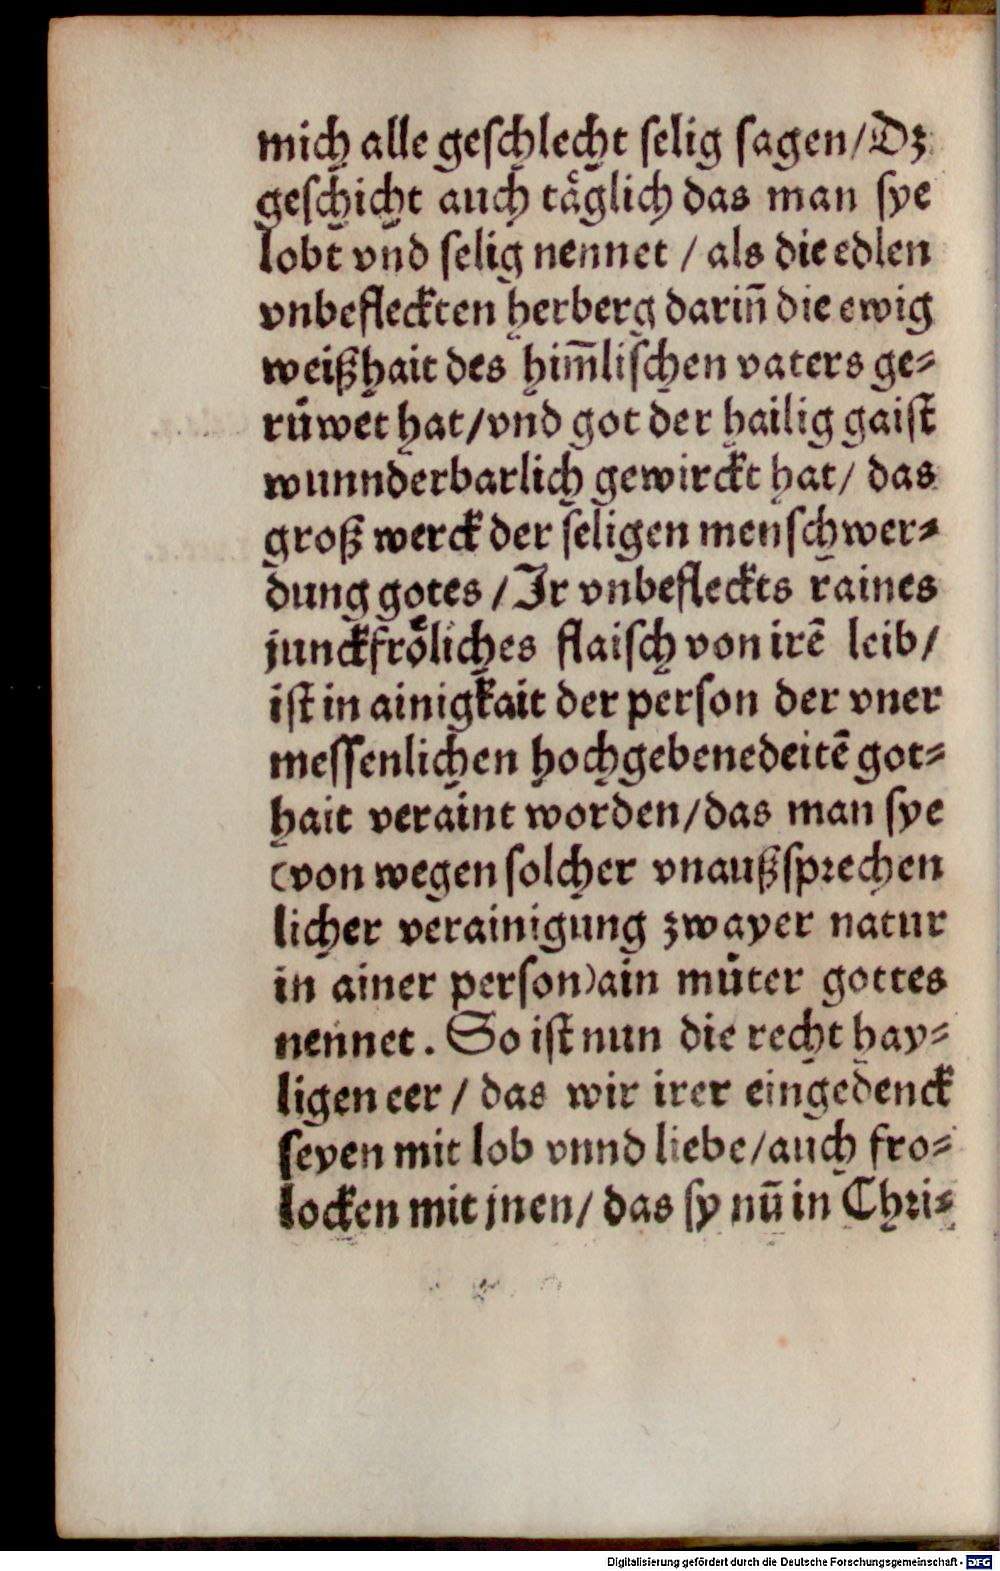 mich alle geschlecht selig sagen/Dz
geschicht auch taͤglich das man sye
lobt vnd selig nennet / als die edlen
vnbefleckten herberg darin̄ die ewig
weißhait des him̄lischen vaters ge⸗
ruͤwet hat/vnd got der hailig gaist
wunnderbarlich gewirckt hat/ das
groß werck der seligen menschwer⸗
dung gotes / Ir vnbefleckts raines
junckfroͤliches flaisch von irē leib/
ist in ainigkait der person der vner
messenlichen hochgebenedeitē got⸗
hait veraint worden/das man sye
(von wegen solcher vnaußsprechen
licher verainigung zwayer natur
in ainer person)ain muͤter gottes
nennet. So ist nun die recht hay⸗
ligen eer / das wir irer eingedenck
seyen mit lob vnnd liebe/auch fro⸗
locken mit jnen/ das sy nū in Chri⸗
Digitalisierung gefördert durch die Deutsche Forschungsgemeinschaft - DFG